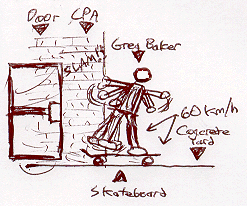 Door CPA
Greg Baker
SLAM!
60 km/h
Concrete
Yard
Skateboard